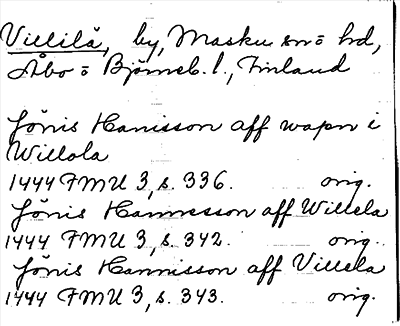 Villilä, by, Masku sn o hd,
Åbo o Björneb. l., Finland
Jönis Hanisson aff wapn i
Willola
1444 FMU 3, s. 336. orig.
Jönis Hannesson aff Willela
1444 FMU 3, s. 342. orig.
Jönis Hannisson aff Villela
1444 FMU 3, s. 343. orig.